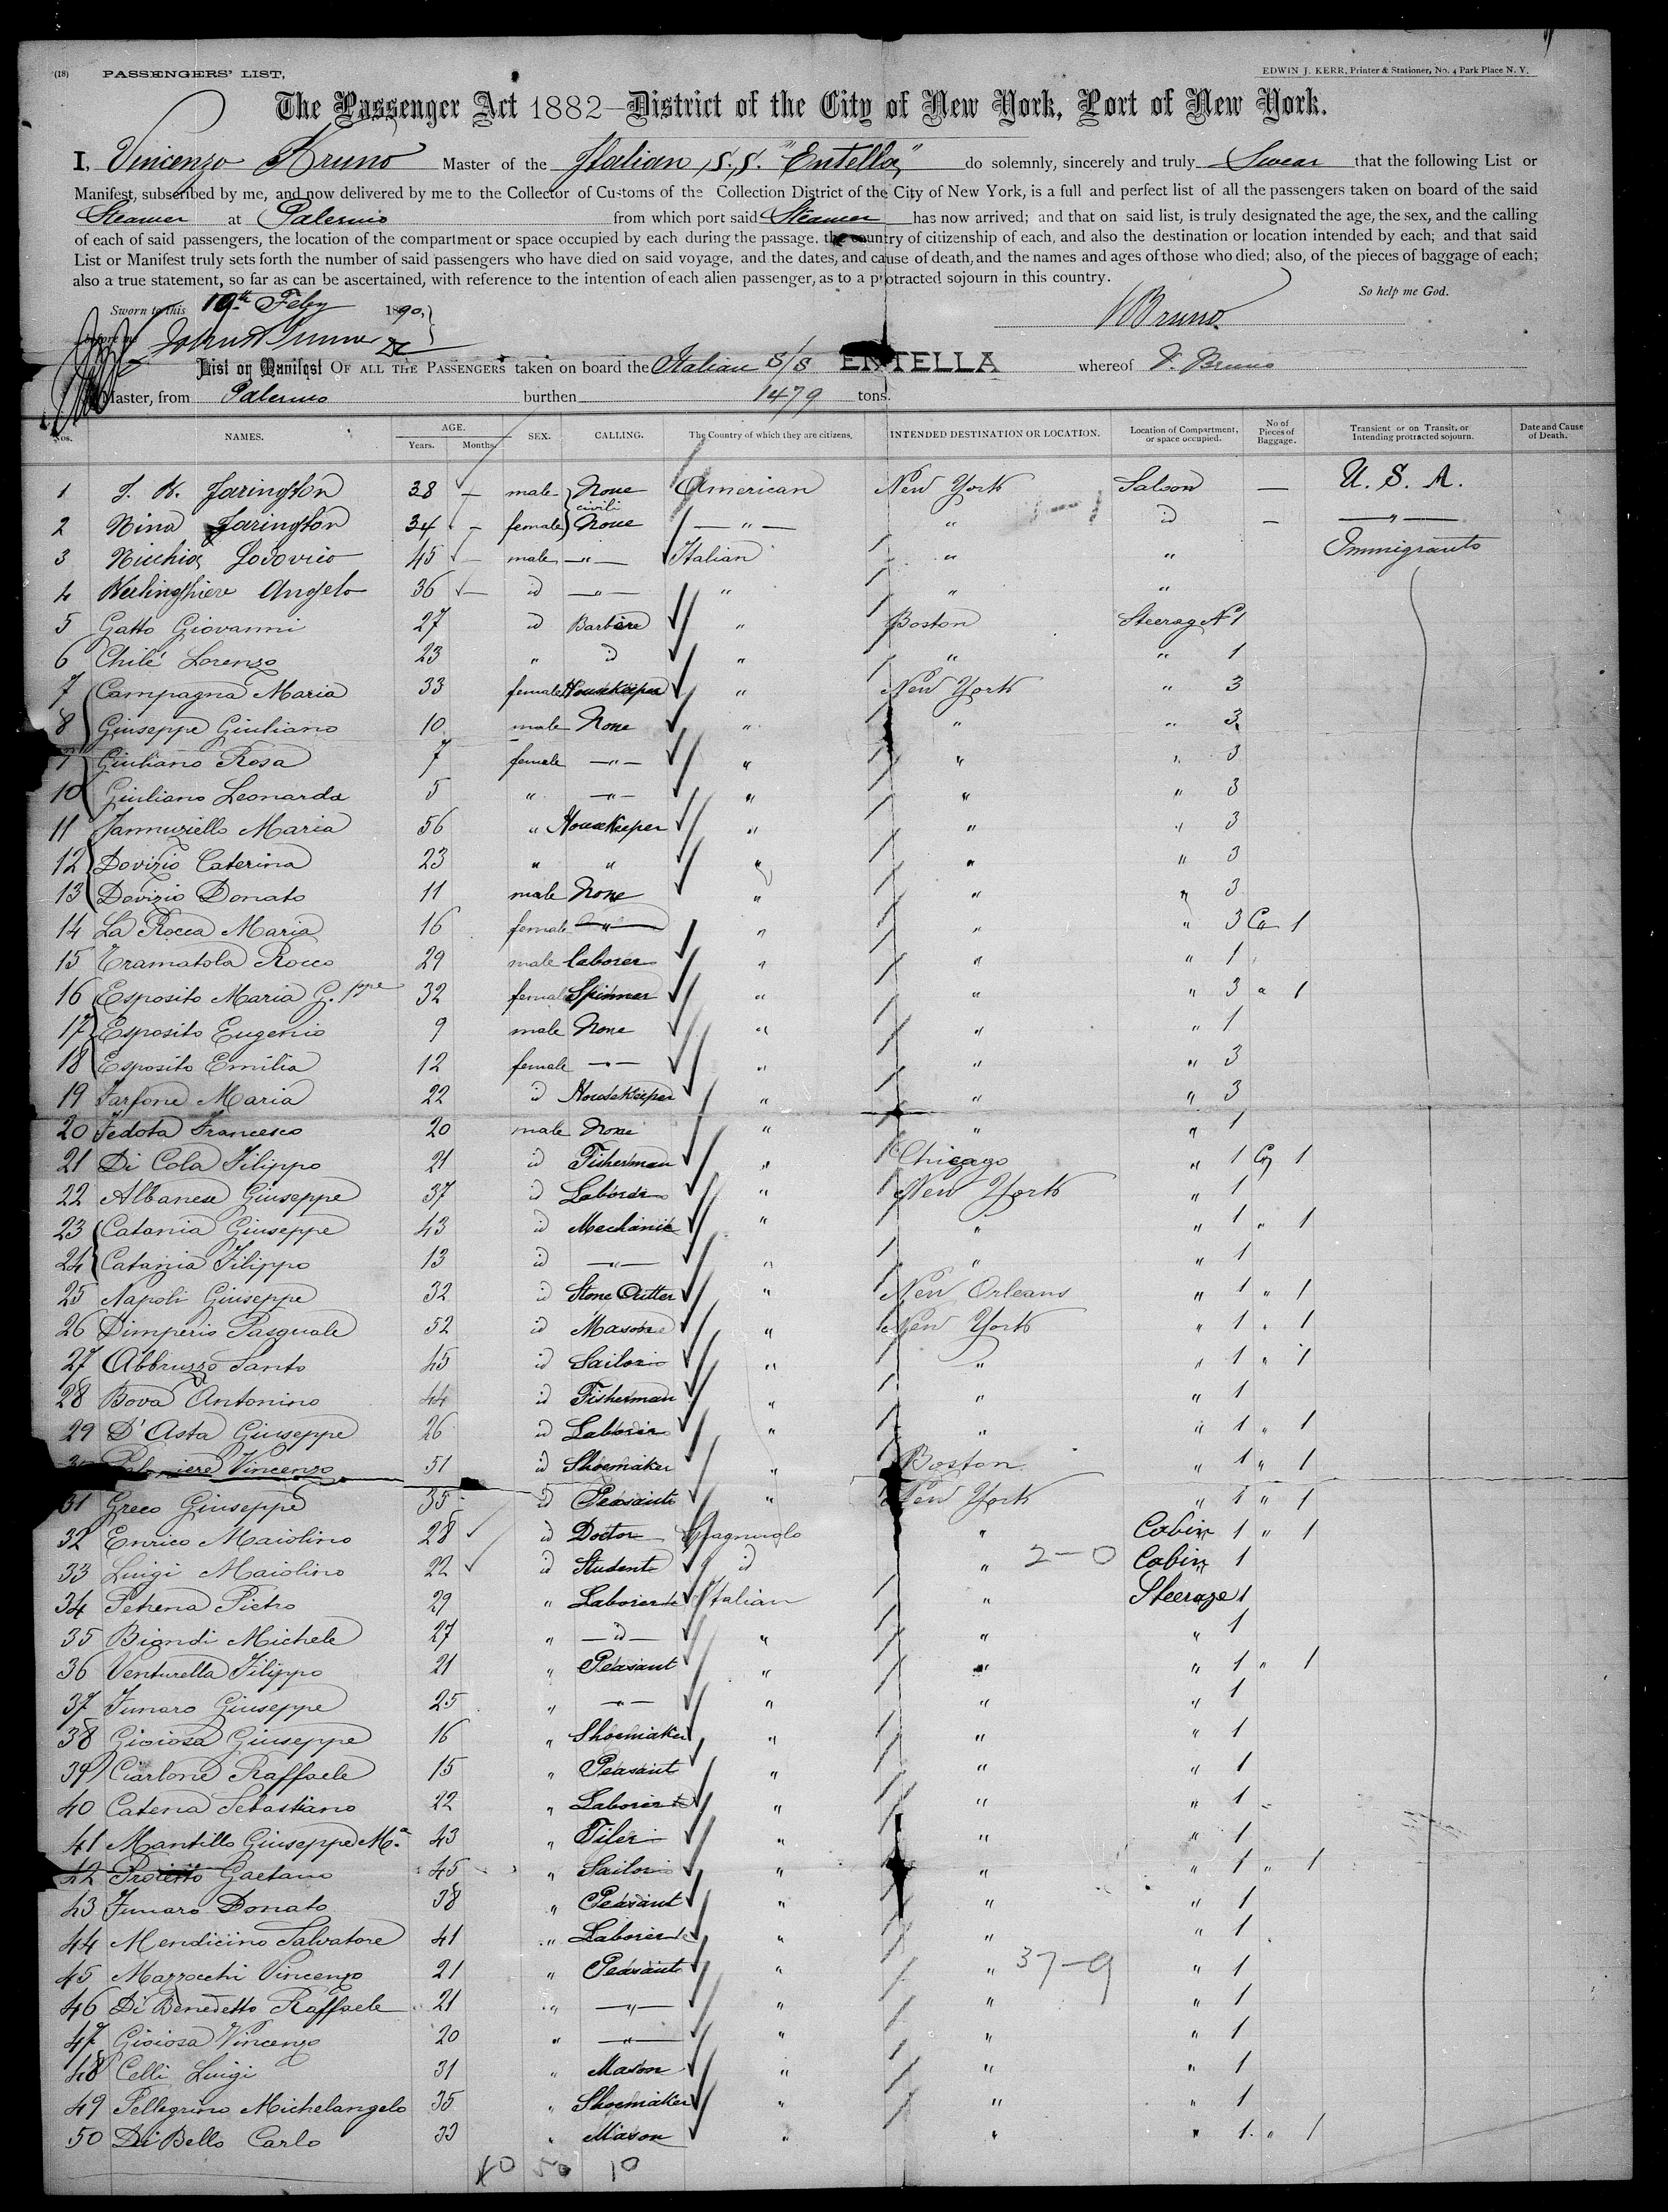 (18) PASSENGERS' LIST,
EDWIN J. KERR, Printer & Stationer, No. 4 Park Place N. Y.
The Passenger Act 1882—District of the City of New York, Port of New York.
I, Vincenzo Bruno Master of the Italian S.S. "Entella" do solemnly, sincerely and truly Swear that the following List or
Manifest, subscribed by me, and now delivered by me to the Collector of Customs of the Collection District of the City of New York, is a full and perfect list of all the passengers taken on board of the said
Steamer at Palermo from which port said Steamer has now arrived; and that on said list, is truly designated the age, the sex, and the calling
of each of said passengers, the location of the compartment or space occupied by each during the passage. the country of citizenship of each, and also the destination or location intended by each; and that said
List or Manifest truly sets forth the number of said passengers who have died on said voyage, and the dates, and cause of death, and the names and ages of those who died; also, of the pieces of baggage of each;
also a true statement, so far as can be ascertained, with reference to the intention of each alien passenger, as to a protracted sojourn in this country.
So help me God.
Sworn to this 19th Feby 1890,
VBruno.
List or Manifest OF ALL THE PASSENGERS taken on board the Italian S/S ENTELLA whereof V. Bruno
Master, from Palermo burthen 1479 tons.
Nos. NAMES. AGE. Years. Months. SEX. CALLING. The Country of which they are citizens. INTENDED DESTINATION OR LOCATION. Location of Compartment, or space occupied. No of Pieces of Baggage. Transient or on Transit, or Intending protracted sojourn. Date and Cause of Death.
1 38 — male None American New York Saloon — U. S. A.
civili
2 Nina Farington 34 — female None — " — " id — — " —
3 Lodovico 45 — male — " — Italian " " Immigrants
4 Angelo 36 — id — " — " " "
5 Gatto Giovanni 27 id Barbiere " Boston Steerage N 1
6 Chilé Lorenzo 23 " id " " " 1
7 Campagna Maria 33 female Housekeeper " New York " 3
8 Giuseppe Giuliano 10 male None " " " 3
Giuliano Rosa 7 female — " — " " " 3
10 Giuliano Leonarda 5 " — " — " " " 3
11 Jannuziello Maria 56 " Housekeeper " " " 3
12 Dovizio Caterina 23 " " " " " 3
13 Dovizio Donato 11 male None " " " 3
14 La Rocca Maria 16 female — " — " " " 3 1
15 Tramatola Rocco 29 male laborer " " " 1
16 Esposito Maria G.ppe 32 female Spinner " " " 3 " 1
17 Esposito Eugenio 9 male None " " " 1
18 Esposito Emilia 12 female — " — " " " 3
19 Farfone Maria 22 id Housekeeper " " " 3
20 Fedota Francesco 20 male None " " " 1
21 Di Cola Filippo 21 id Fisherman " Chicago " 1 1
22 Albanese Giuseppe 37 id Laborer " New York " 1
23 Catania Giuseppe 43 id Mechanic " " " 1 " 1
24 Catania Filippo 13 id — " — " " " 1
25 Napoli Giuseppe 32 id Stone Cutter " New Orleans " 1 " 1
26 Dimperio Pasquale 52 id Mason " New York " 1 " 1
27 Abbruzzo Santo 45 id Sailor " " " 1 " 1
28 Bova Antonino 44 id Fisherman " " " 1
29 D'Asta Giuseppe 26 id Laborer " " " 1 " 1
Vincenzo 51 id Shoemaker " Boston " 1 " 1
31 Greco Giuseppe 35 id Peasant " New York " 1 " 1
32 Enrico Maiolino 28 id Doctor Spagnuolo " Cabin 1 " 1
33 Luigi Maiolino 22 id Student id " 2—0 Cabin 1
34 Petrena Pietro 29 " Laborer Italian " Steerage 1
35 Biondi Michele 27 " — id — " " " 1
36 Venturella Filippo 21 " Peasant " " " 1 " 1
37 Funaro Giuseppe 25 " — " — " " " 1
38 Gioiosa Giuseppe 16 " Shoemaker " " " 1
39 Ciarlone Raffaele 15 " Peasant " " " 1
40 Catena Sebastiano 22 " Laborer " " " 1
41 Mantillo Giuseppe M.a 43 " Tiler " " " 1
42 Proietto Gaetano 45 " Sailor " " " 1 " 1
43 Funaro Donato 38 " Peasant " " " 1
44 Mendicino Salvatore 41 " Laborer " " " 1
45 Mazzocchi Vincenzo 21 " Peasant " " 37—9 " 1
46 Di Benedetto Raffaele 21 " — " — " " " 1
47 Gioiosa Vincenzo 20 " — " — " " " 1
48 Celli Luigi 31 " Mason " " " 1
49 Pellegrino Michelangelo 35 " Shoemaker " " " 1
50 Di Bello Carlo 33 " Mason " " " 1 " 1
10